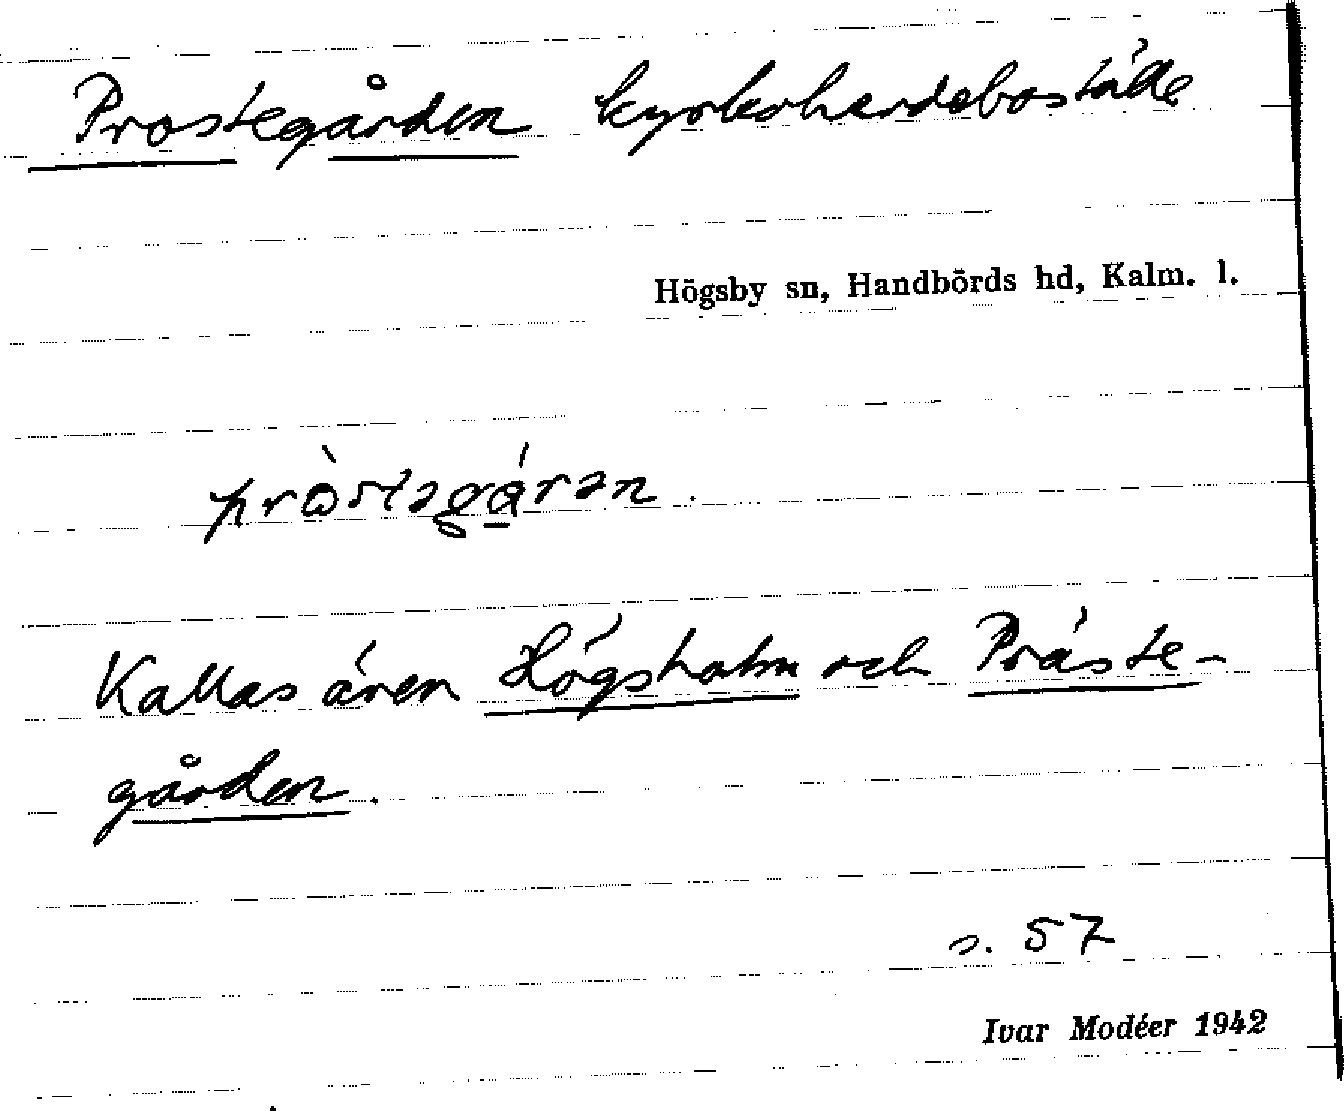 Prostegården kyrkoherdeboställe
Högsby sn, Handbörds hd, Kalm. l.
Kallas även Högsholm och Präste-
gården.
s. 57
Ivar Modéer 1942